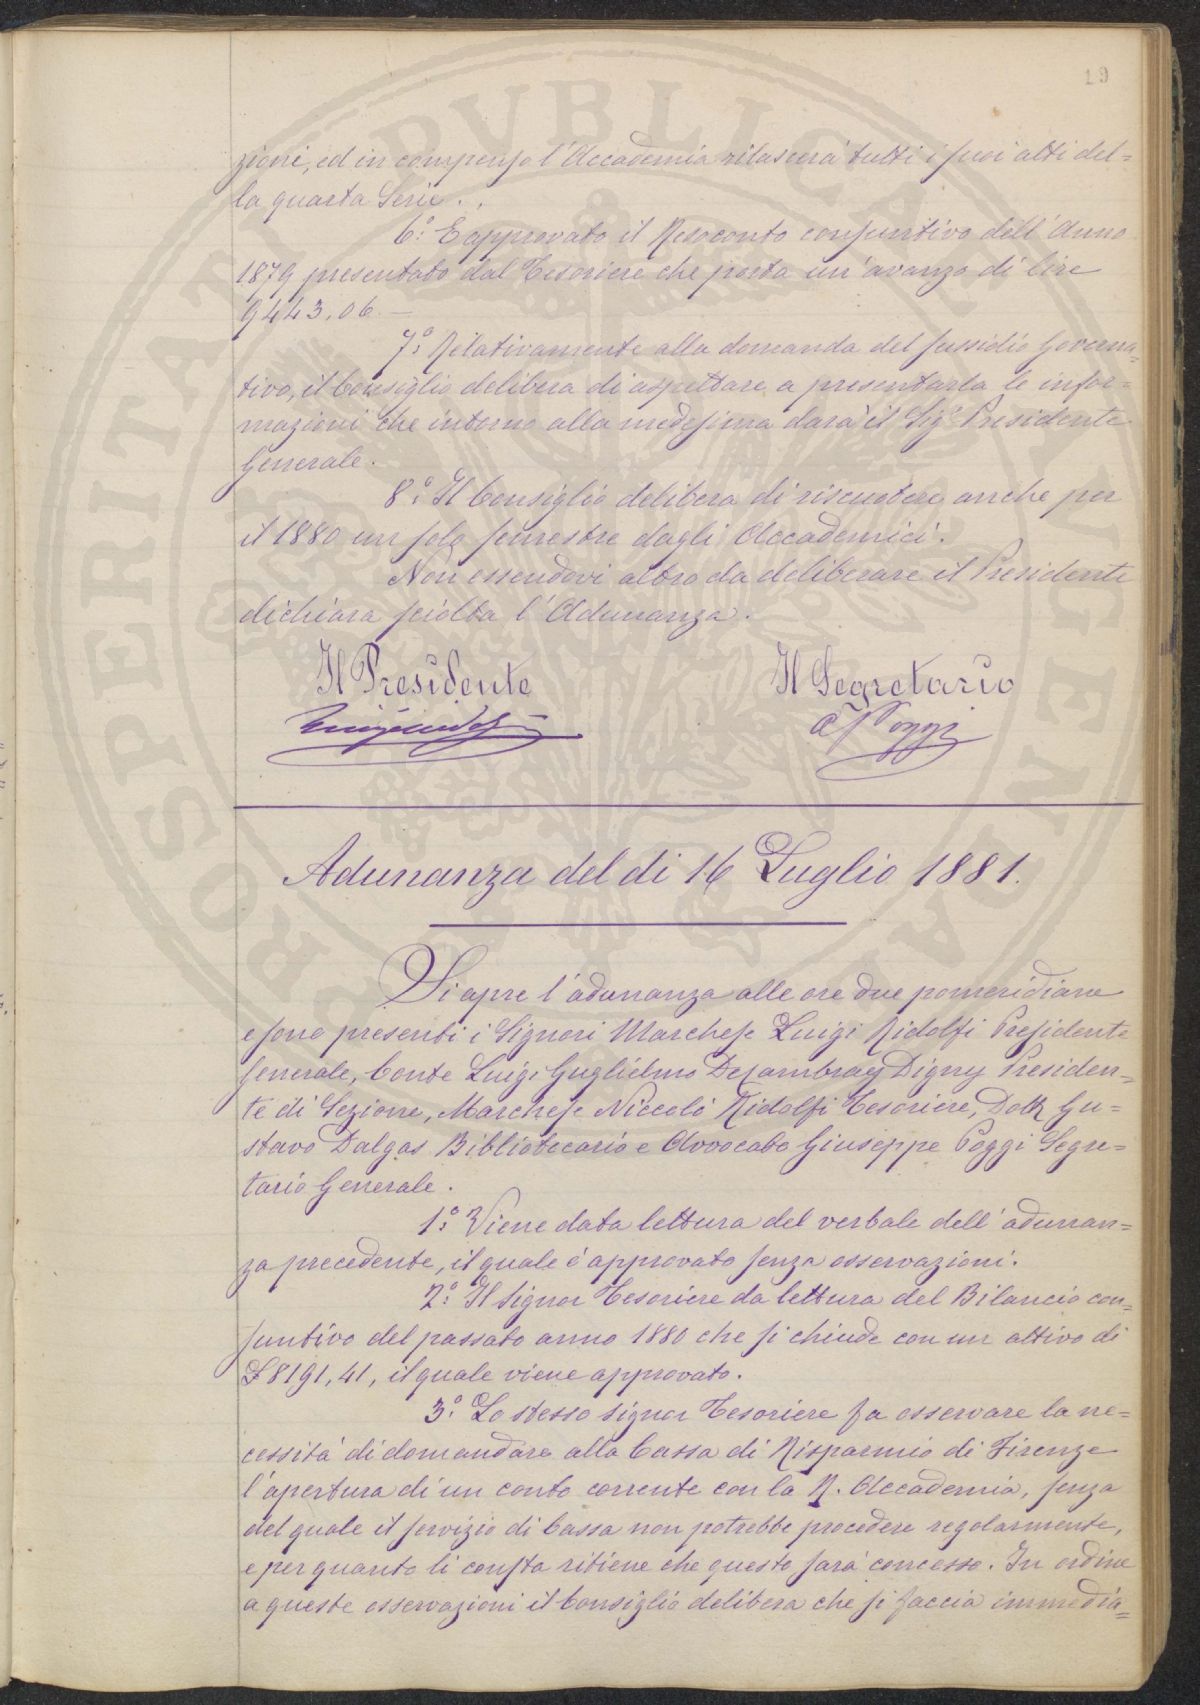 19
zioni, ed in compenso l'Accademia rilascerà tutti i suoi atti del=
la quarta Serie.
6.° È approvato il Resoconto consuntivo dell'Anno
1879 presentato dal Tesoriere che porta un'avanzo di lire
9443,06. —
7.° Relativamente alla domanda del sussidio Governa=
tivo, il Consiglio delibera di aspettare a presentarla le infor=
mazioni che intorno alla medesima darà il Sig.r Presidente
Generale.
8.° Il Consiglio delibera di riscuotere anche per
il 1880 un solo semestre dagli Accademici.
Non essendovi altro da deliberare il Presidente
dichiara sciolta l'Adunanza.
Il Presidente Il Segretario
Poggi
Adunanza del di 16 Luglio 1881.
Si apre l'adunanza alle ore due pomeridiane
e sono presenti i Signori Marchese Luigi Ridolfi Presidente
Generale, Conte Luigi Guglielmo Decambray Digny Presiden=
te di Sezione, Marchese Niccolò Ridolfi Tesoriere, Dott. Gu=
stavo Dalgas Bibliotecario e Avvocato Giuseppe Poggi Segre=
tario Generale.
1.° Viene data lettura del verbale dell'adunan=
za precedente, il quale è approvato senza osservazioni.
2.° Il Signor Tesoriere da lettura del Bilancio con=
suntivo del passato anno 1880 che si chiude con un attivo di
£ 8191,41, il quale viene approvato.
3.° Lo stesso signor Tesoriere fa osservare la ne=
cessità di domandare alla Cassa di Risparmio di Firenze
l'apertura di un conto corrente con la R. Accademia, senza
del quale il servizio di Cassa non potrebbe procedere regolarmente,
e per quanto li consta ritiene che questo sarà concesso. In ordine
a queste osservazioni il Consiglio delibera che si faccia immedia=